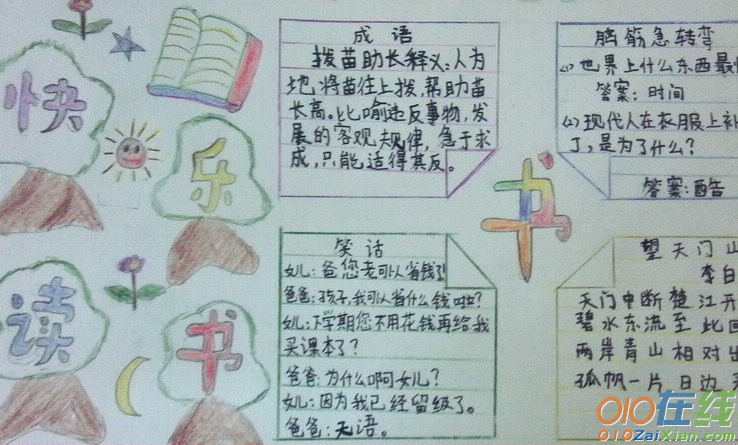 快
乐
读
书
成语
拨苗助长释义:人为
地将苗往上拨,帮助苗
长高。比喻违反事物,发
展的客观规律,急于求
成,只能适得其反。
脑筋急转弯
(1)世界上什么东西最
答案:时间
(2)现代人在衣服上补
了,是为了什么?
答案:酷
书
笑话
女儿:爸您老可以省钱了
爸爸:孩子,我可以省什么钱啦?
女儿:下学期您不用花钱再给我
买课本了?
爸爸:为什么啊女儿?
女儿:因为我已经留级了。
爸爸:无语。
望天门山
李白
天门中断楚江开
碧水东流至此回
两岸青山相对出
孤帆一片日边
010在线
010ZaiXian.com